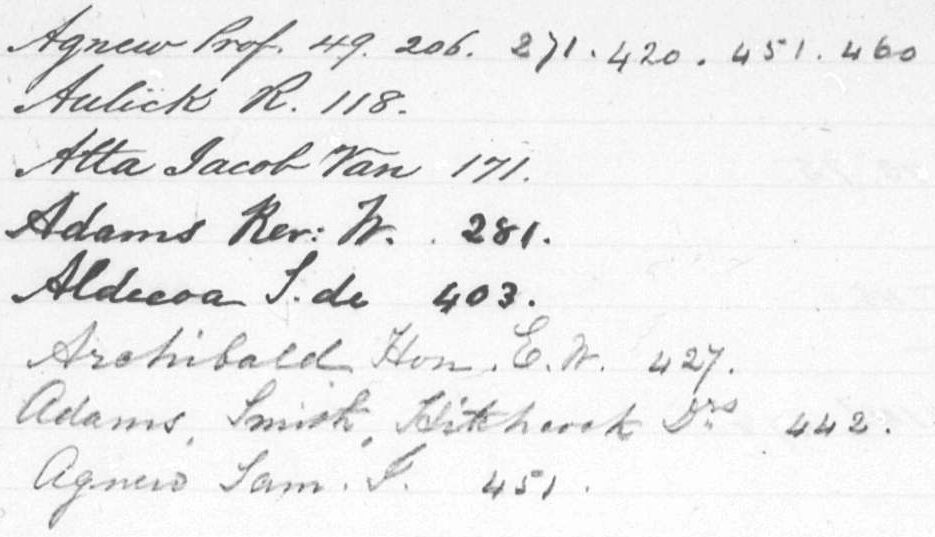 Agnew Prof. 49. 206. 271. 420. 451. 460
Aulick R. 118.
Alta Jacob Van 171.
Adams Rev: W. 281.
Aldecoa S. de 403.
Archibald Hon. E. W. 427.
Adams, Smith, Hitchcock Drs 442.
Agnew Sam. I. 451.